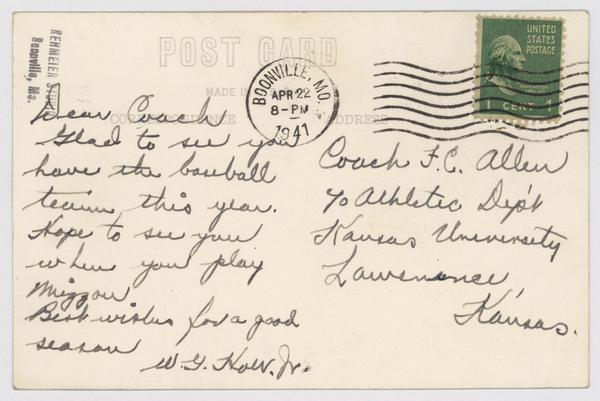 REHMEIER STUDIO
Boonville, Mo.
POST CARD
MADE IN
CORRESPONDENCE
ADDRESS
BOONVILLE, MO.
APR 22
8-PM
1941
UNITED
STATES
POSTAGE
WASHINGTON
1 CENT 1
Dear Coach
Glad to see you
have the baseball
team this year.
Hope to see you
when you play
Mizzou
Best wishes for a good
season
W. G.
Jr.
Coach F.C. Allen
℅ Athletic Dep't
Kansas University
Lawrence,
Kansas.